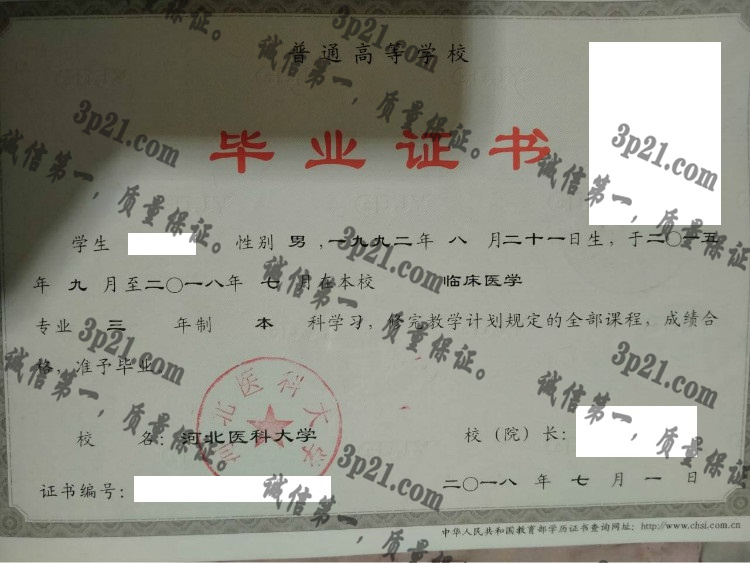 普通高等学校
毕业证书
学生 性别 男 ,一九九二年 八 月二十一日生，于二〇一五
年 九 月至二〇一八年 七 月在本校 临床医学
专业 三 年制 本 科学习，修完教学计划规定的全部课程，成绩合
格，准予毕业。
河北医科大学
校 名：河北医科大学 校（院）长：
证书编号： 二〇一八 年 七 月 一 日
中华人民共和国教育部学历证书查询网址：http://www.chsi.com.cn
3p21.com
诚信第一，质量保证。
3p21.com
诚信第一，质量保证。
3p21.com
诚信第一，质量保证。
3p21.com
诚信第一，质量保证。
3p21.com
诚信第一，质量保证。
3p21.com
诚信第一，质量保证。
3p21.com
诚信第一，质量保证。